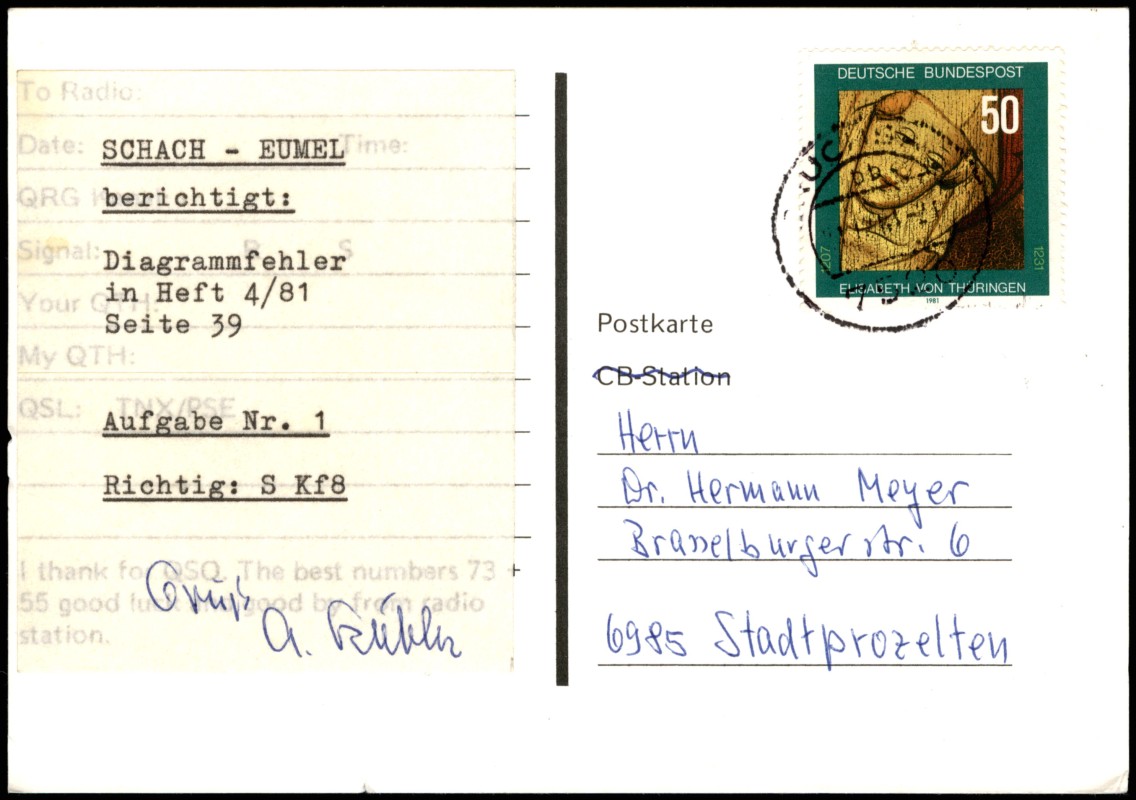 To Radio:
Date: Time:
SCHACH - EUMEL
QRG
berichtigt:
Signal: R S
Diagrammfehler
in Heft 4/81
Your QTH:
Seite 39
My QTH:
QSL: TNX/PSE
Aufgabe Nr. 1
Richtig: S Kf8
I thank for QSO. The best numbers 73 +
55 good luck and good by from radio
station.
Gruß
A.
DEUTSCHE BUNDESPOST
50
1207
1231
ELISABETH VON THÜRINGEN
1981
Postkarte
CB-Station
Herrn
Dr. Hermann Meyer
Brasselburger str. 6
6985 Stadtprozelten